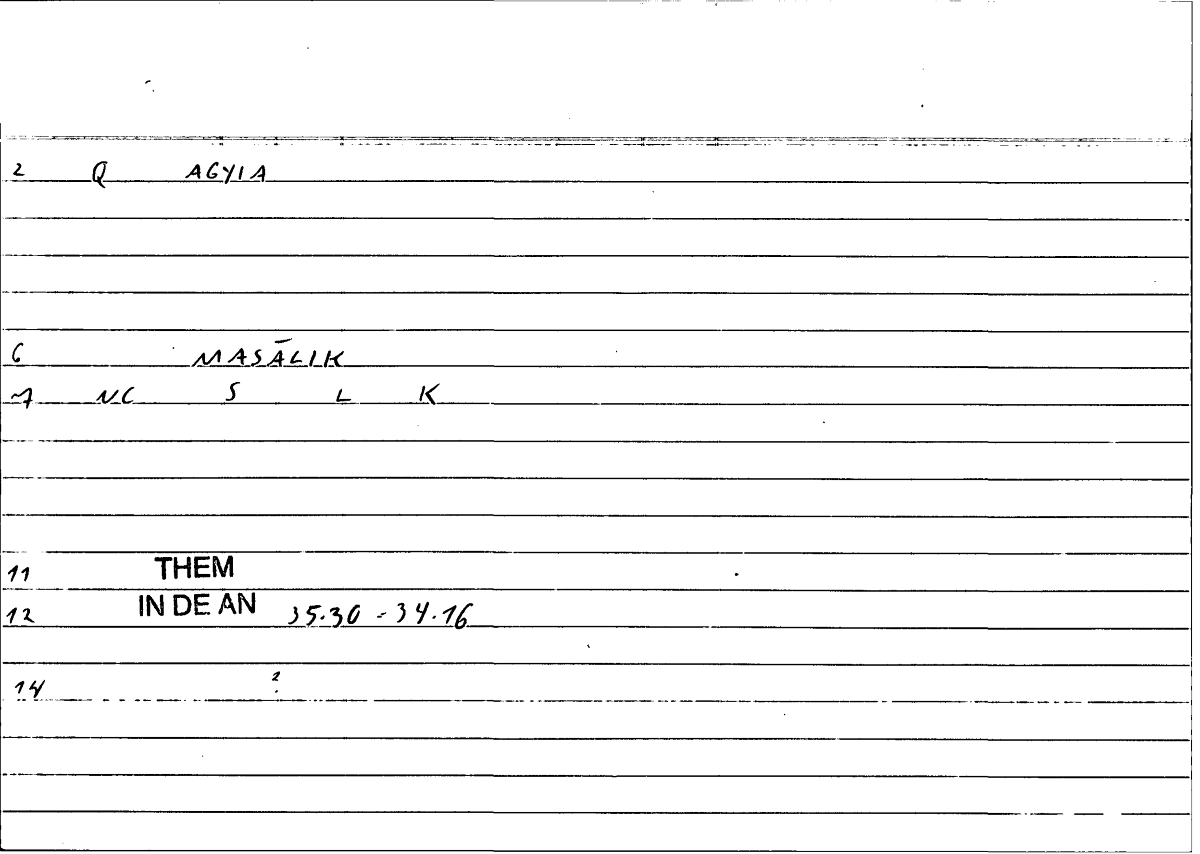 2 Q AGYIA
6 MASĀLIK
7 NC S L K
11 THEM
12 IN DE AN 35.30 - 34.16
14 ?